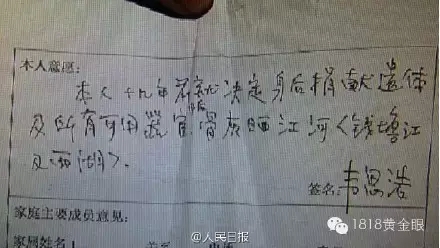 本人意愿:
本人十九年前就决定身后捐献遗体
及所有可用器官,骨灰晒江河(钱塘江
及西湖)。
签名:韦思浩
家庭主要成员意见:
家属姓名
@人民日报
1818黄金眼